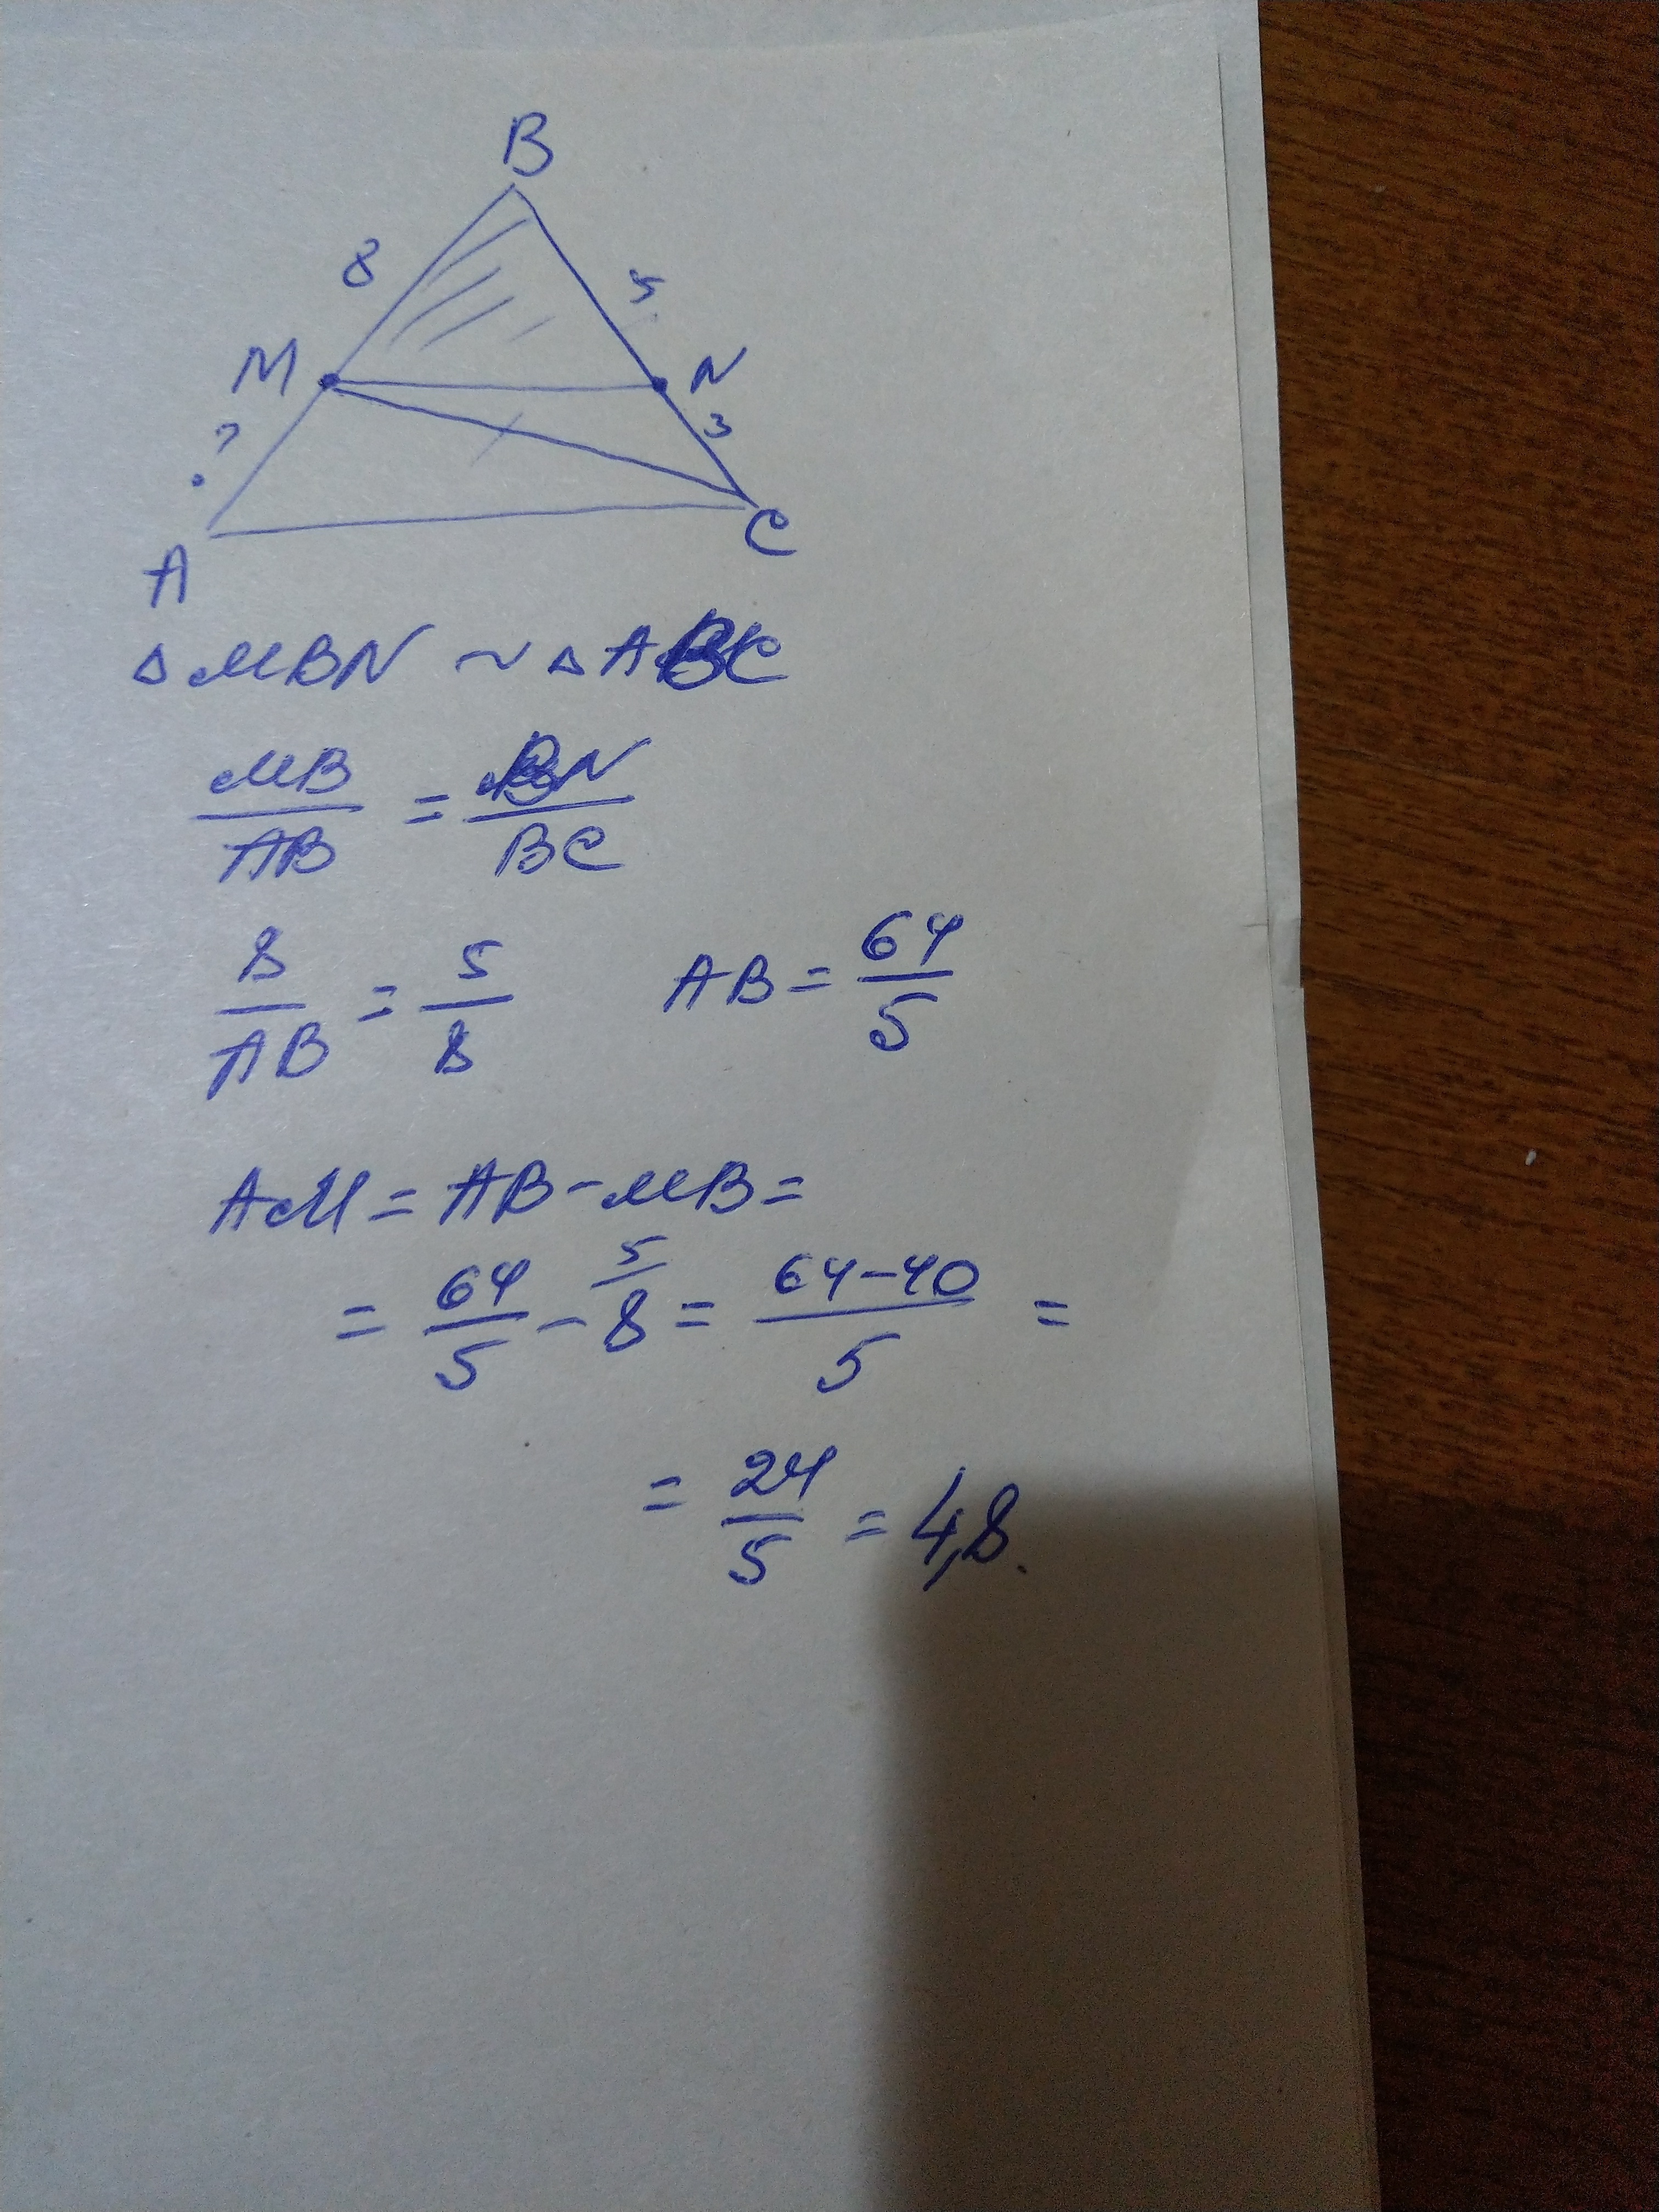 B
8 5
M N
? 3
A C
△MBN ~ △ABC
MB/AB = BN/BC
8/AB = 5/8 AB = 64/5
AM = AB - MB =
= 64/5 - 8 5/ = 64-40/5 =
= 24/5 = 4,8.